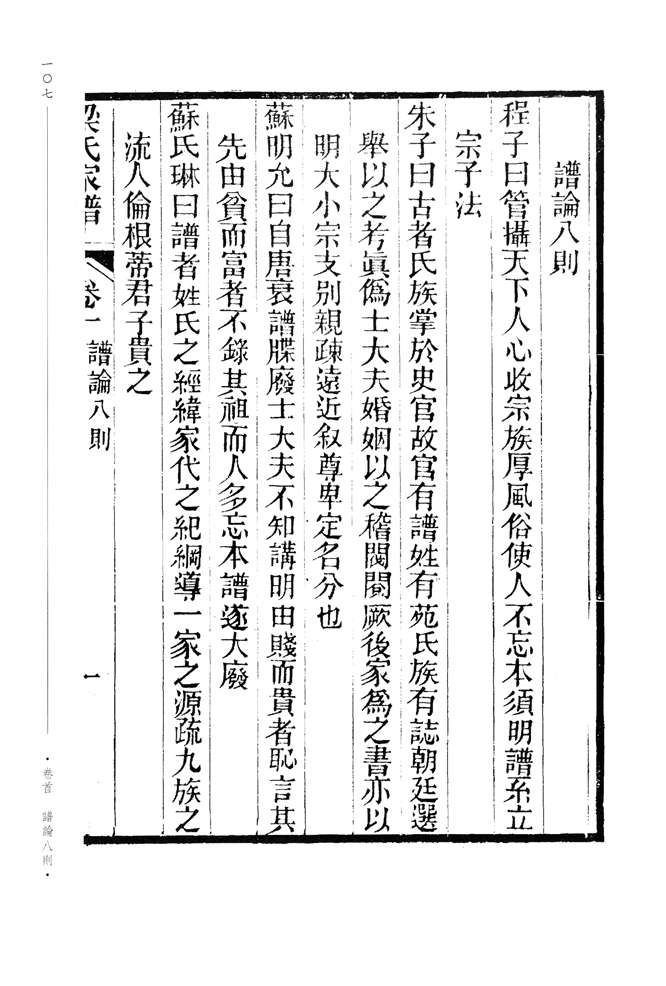 譜論八則
程子曰管攝天下人心收宗族厚風俗使人不忘本須明譜系立
宗子法
朱子曰古者氏族掌於史官故官有譜姓有苑氏族有誌朝廷選
舉以之考眞僞士大夫婚姻以之稽閥閱厥後家爲之書亦以
明大小宗支別親疎遠近叙尊卑定名分也
蘇明允曰自唐衰譜牒廢士大夫不知講明由賤而貴者恥言其
先由貧而富者不錄其祖而人多忘本譜遂大廢
蘇氏琳曰譜者姓氏之經緯家代之紀綱導一家之源疏九族之
流人倫根蒂君子貴之
梁氏家譜 卷一 譜論八則 一
一〇七
·卷首 譜論八則·